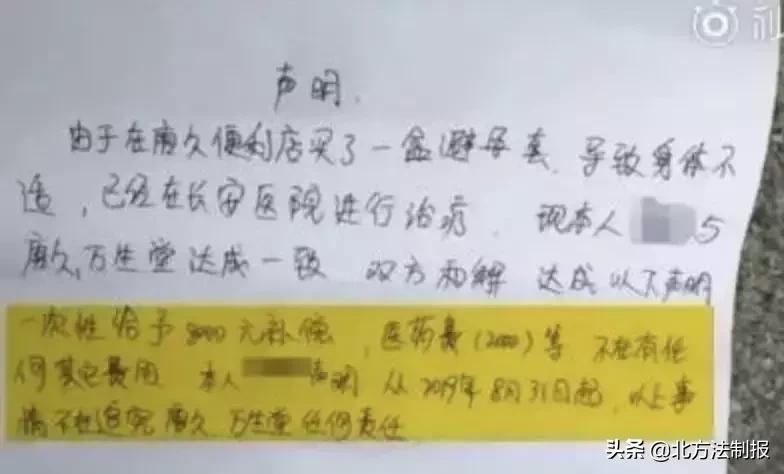 声明.
由于在唐久便利店买了一盒避孕套、导致身体不
适，已经在长安医院进行治疗. 现本人 与
唐久,万生堂达成一致 双方和解 达成以下声明
一次性给予8000元补偿，医药费(2000)等 不在有任
何其它费用 本人 声明 从2019年8月31日起，以上事
情不在追究唐久 万生堂任何责任
头条@北方法制报